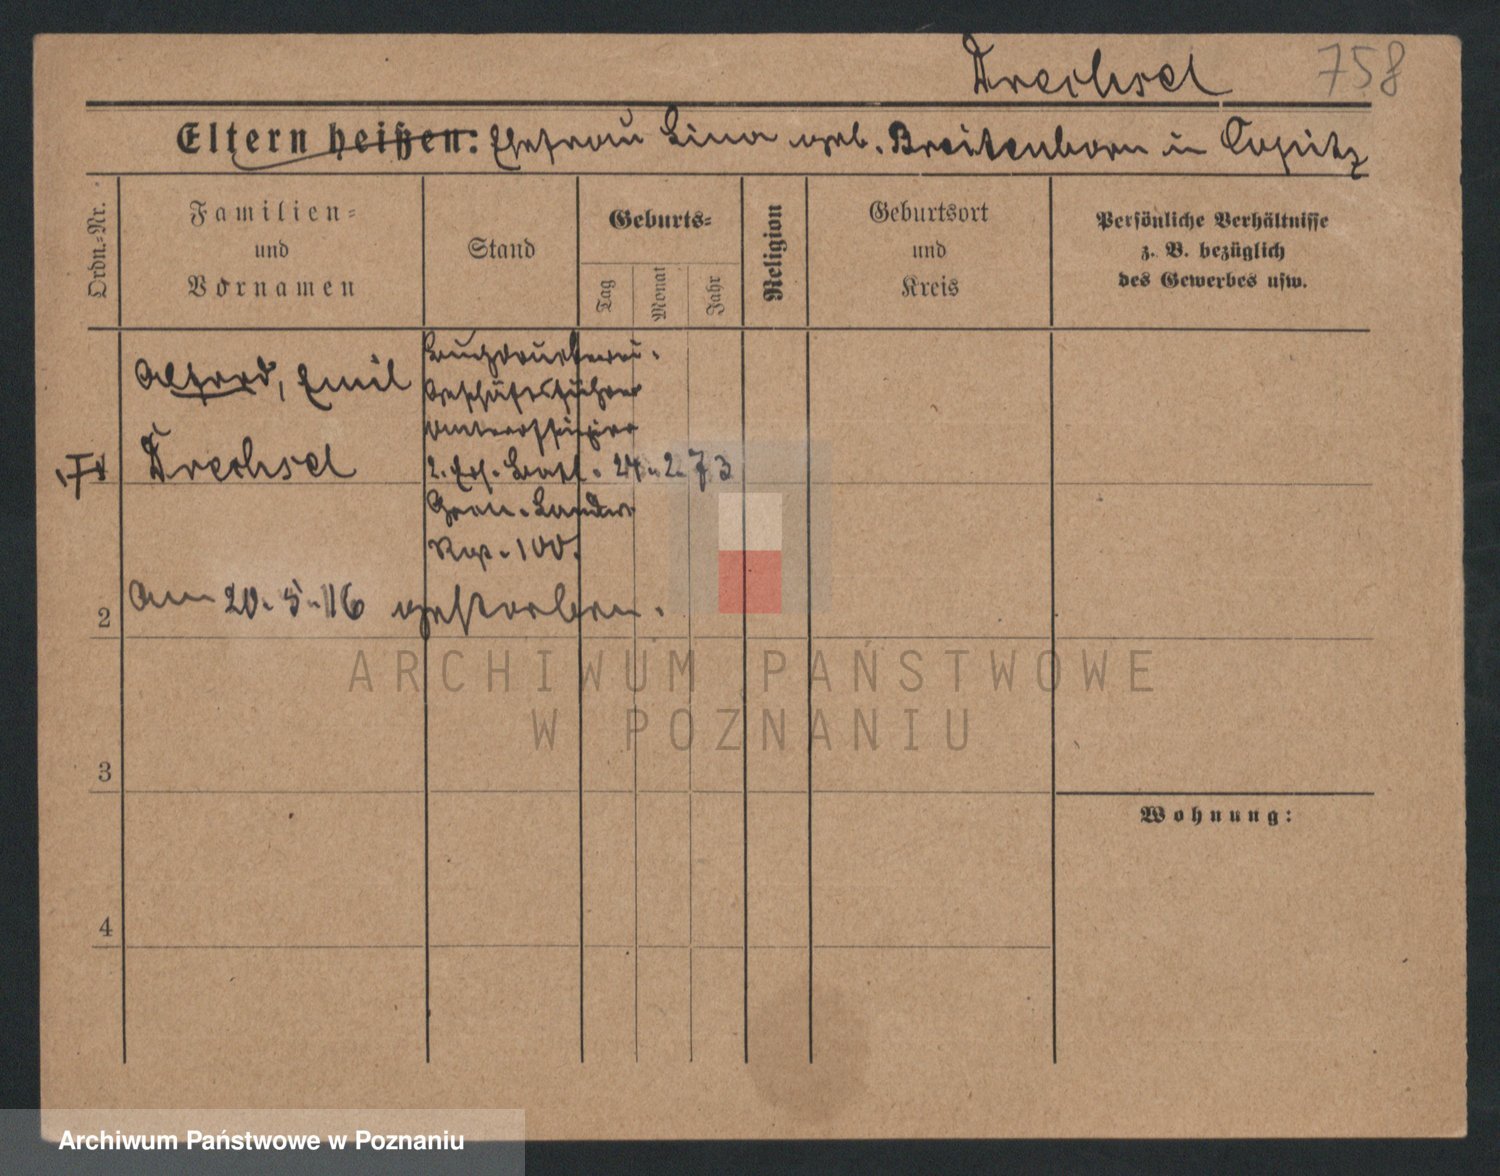 Drechsel 758
Eltern heißen: Ehefrau Lina geb. Breitenborn in Copitz
Ordn.=Nr.
Familien=
und
Vornamen
Stand
Geburts=
Tag
Monat
Jahr
Religion
Geburtsort
und
Kreis
Persönliche Verhältnisse
z. B. bezüglich
des Gewerbes usw.
Alfred, Emil
Drechsel
Buchdruckerei-
Geschäftsführer
Unteroffizier
2. Ers. Batl.
Gren. Landw
Rgt. 100.
24. 2. 73
Am 20. 5. 16 gestorben.
2
3
4
Wohnung:
ARCHIWUM PAŃSTWOWE
W POZNANIU
Archiwum Państwowe w Poznaniu